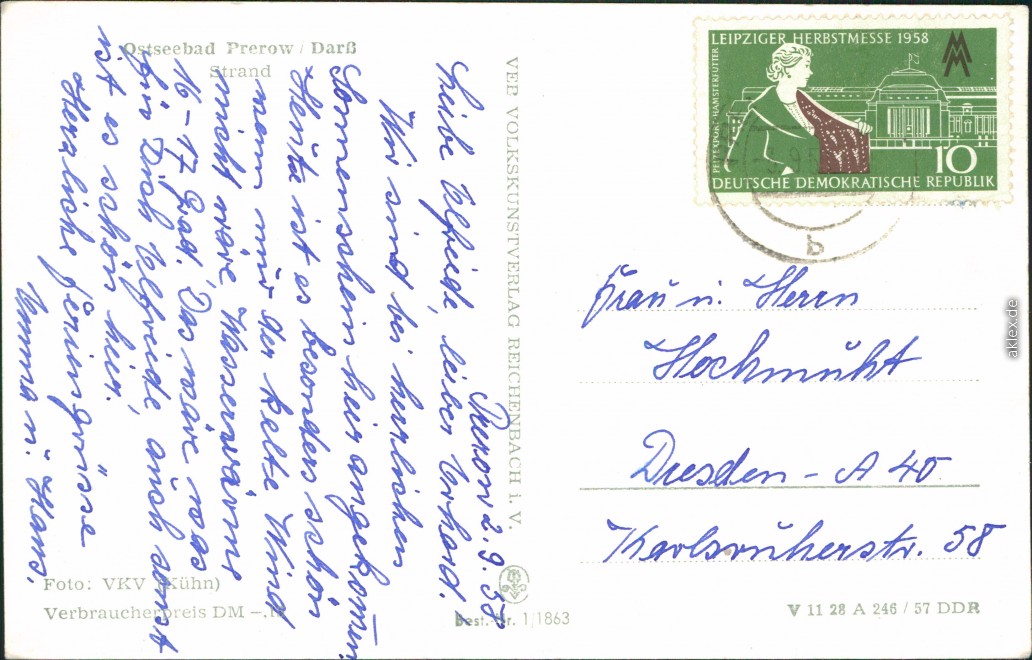 Ostseebad Prerow / Darß
Strand
Prerow 2. 9. 58.
Liebe Elfriede, lieber Erhard.
Wir sind bei herrlichen
Sonnenschein hier angekommen.
Heute ist es besonders schön
wenn nur der kalte Wind
nicht wäre, Wasserwärme
16-17 Grad. Das wäre was
für Dich Elfriede, auch sonst
ist es schön hier.
Herzliche Feriengrüsse
u. Hans.
VEB VOLKSKUNSTVERLAG REICHENBACH i. V.
Foto: VKV (Kühn)
Verbraucherpreis DM
Best.-Nr. 1/1863
LEIPZIGER HERBSTMESSE 1958
PELZEXPORT-HAMSTERFUTTER
MM
10
DEUTSCHE DEMOKRATISCHE REPUBLIK
b
Frau u. Herrn
Hockmuht
Dresden - A 40
Karlsruherstr. 58
V 11 28 A 246 / 57 DDR
aklex.de